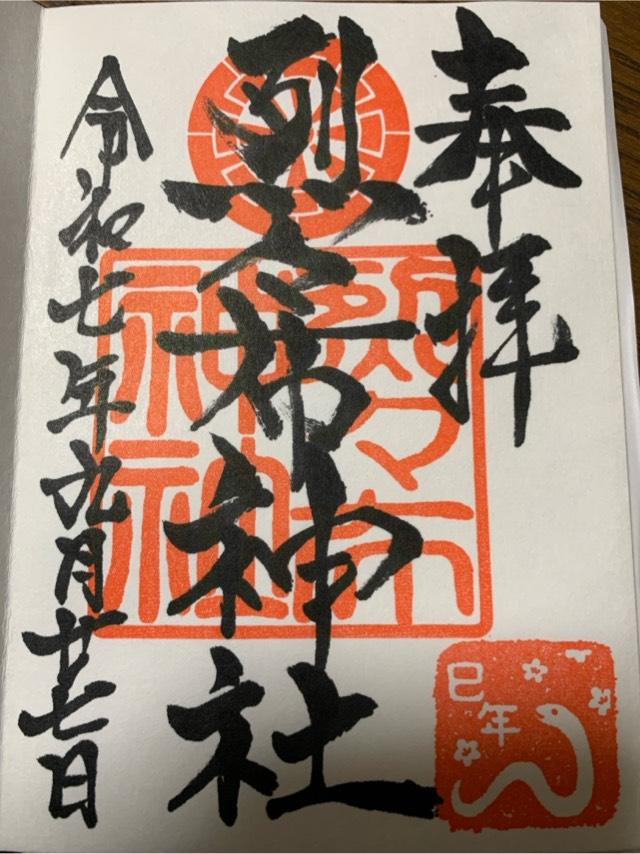 奉拝
烈々布神社
令和七年九月廿七日
烈々布
神社
巳年